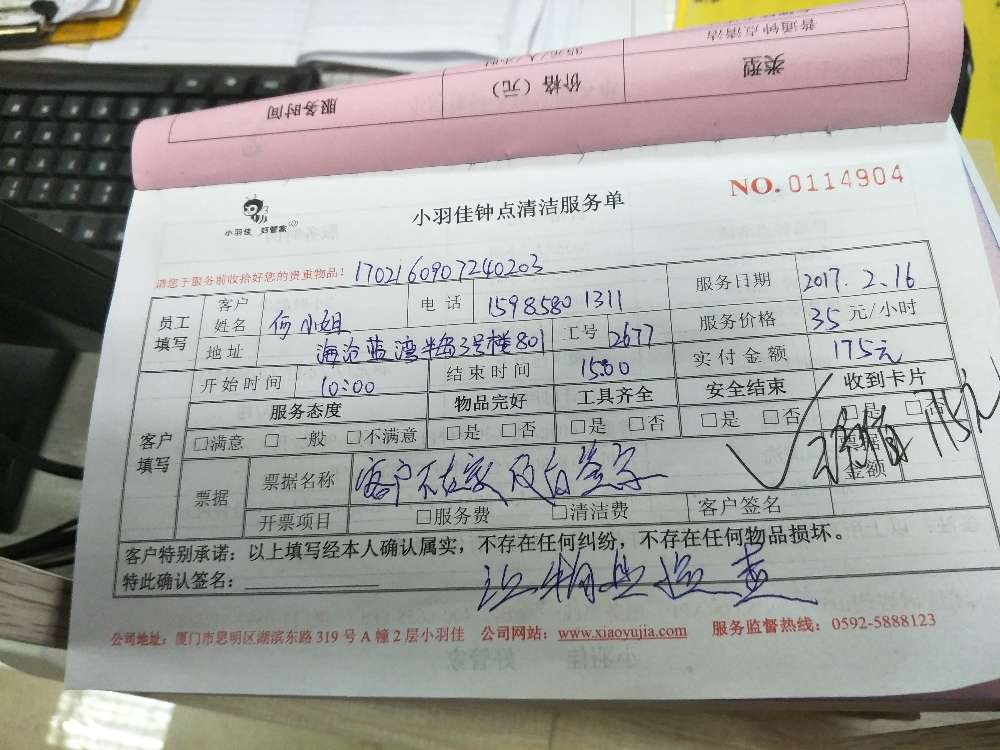 普通钟点清洁
类型
价格（元）
服务时间
小羽佳 好管家
小羽佳钟点清洁服务单
NO.0114904
请您于服务前收拾好您的贵重物品！
1702160907240203
员工填写
客户姓名
何小姐
电话
15985801311
服务日期
2017.2.16
地址
海沧蓝湾半岛3号楼801
工号
2677
服务价格
35元/小时
开始时间
10:00
结束时间
15:00
实付金额
175元
客户填写
服务态度
物品完好
工具齐全
安全结束
收到卡片
□满意 □一般 □不满意
□是 □否
□是 □否
□是 □否
□是 □否
票据
票据名称
客户不在家
签字
票据金额
开票项目
□服务费 □清洁费
客户签名
客户特别承诺：以上填写经本人确认属实，不存在任何纠纷，不存在任何物品损坏。
特此确认签名：
公司地址：厦门市思明区湖滨东路319号A幢2层小羽佳 公司网站：www.xiaoyujia.com 服务监督热线：0592-5888123